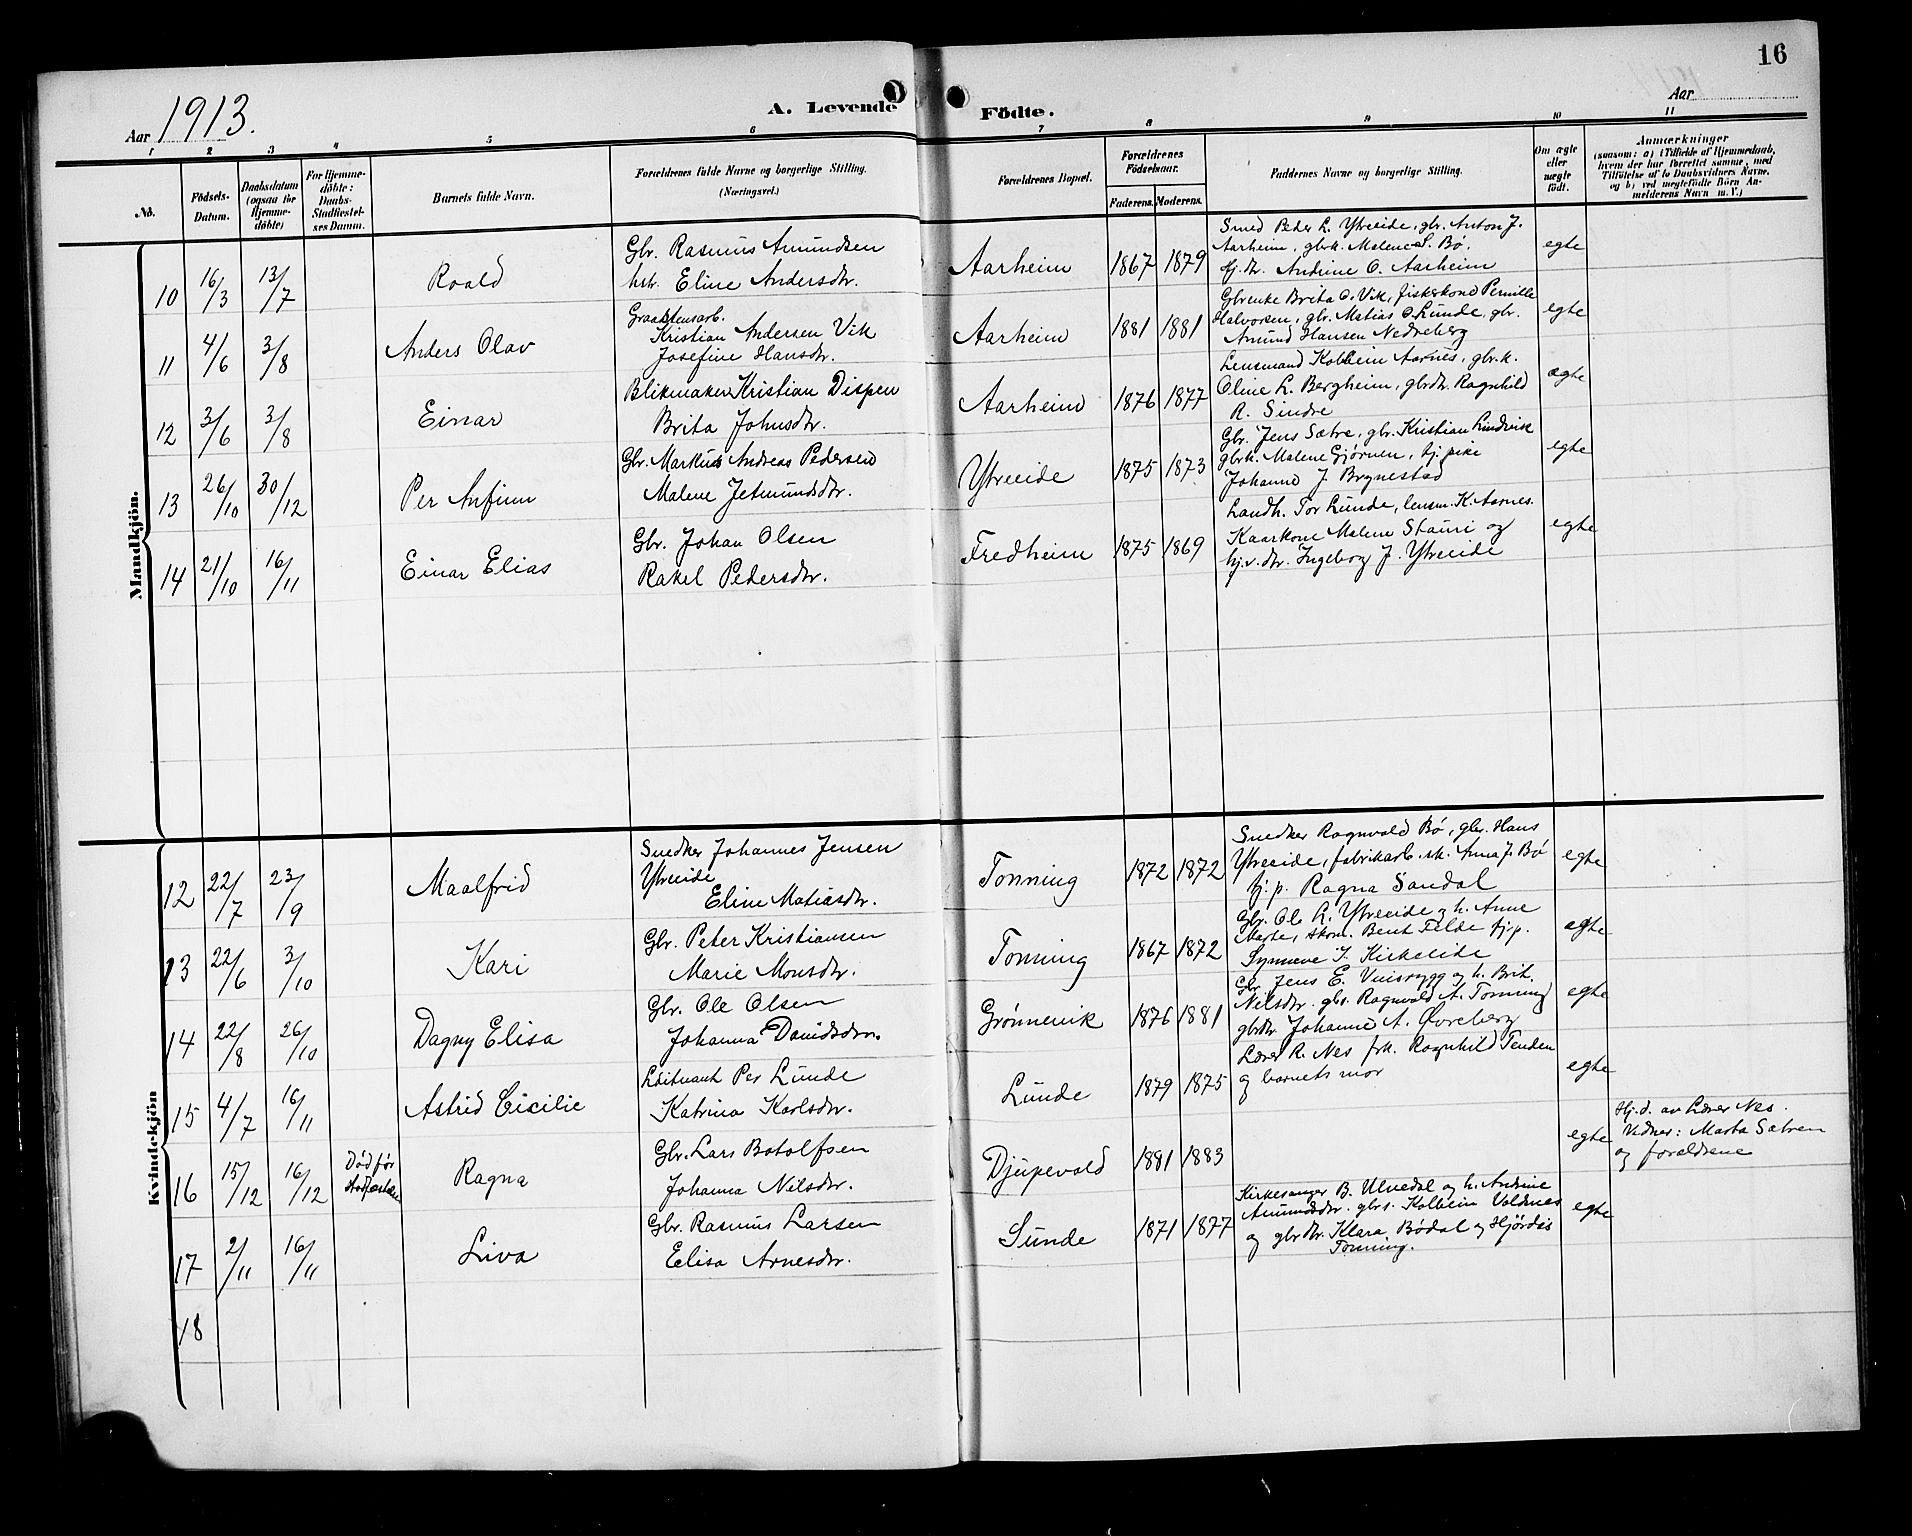 16
Aar 1913.
A. Levende Födte.
Aar
1 2 3 4 5 6 7 8 9 10 11
No.
Födsels-
Datum.
Daabsdatum
(ogsaa for
Hjemme-
döbte)
For Hjemme-
döbte:
Daabs-
Stadfæstel-
ses Datum.
Barnets fulde Navn.
Forældrenes fulde Navne og borgerlige Stilling.
(Næringsvei.)
Forældrenes Bopæl.
Forældrenes
Födselsaar.
Faderens. Moderens.
Faddernes Navne og borgerlige Stilling.
Om ægte
eller
uægte
födt.
Anmærkninger
(saasom: a) i Tilfælde af Hjemmedaab,
hvem der har forrettet samme, med
Tilföielse af to Daabsvidners Navne,
og b) ved uægtefödte Börn An-
melderens Navn m. V.)
Mandkjön.
10 16/3 13/7 Roald
Gbr. Rasmus Amundsen
hstr. Eline Andersdtr.
Aarheim 1867 1879
Smed Peder L. Ytreeide, gbr. Anton J.
Aarheim, gbrk. Malene S. Bø.
Hj. dtr. Andrine O. Aarheim
egte
11 4/6 3/8 Anders Olav
Graastensarb.
Kristian Andersen Vik
Josefine Hansdtr.
Aarheim 1881 1881
Gbrenke Brita O. Vik, fiskerkond Pernille
Halvorsen, gbr. Matias O. Lunde, gbr.
Amund Hansen Nedreberg
egte
12 3/6 3/8 Einar
Blikmaker Kristian Dispen
Brita Johnsdtr.
Aarheim 1876 1877
Lensmand Kolbein Aarnes, gbr.k.
Oline L. Bergheim, gbrdtr. Ragnhild
R. Sindre
ægte
13 26/10 30/12 Per Anfinn
Gbr. Markus Andreas Pedersen
Malene Jetmundsdtr.
Ytreeide 1875 1873
Gbr. Jens Sætre, gbr. Kristian Lindvik
gbrk. Malene Gjørven, hj. pike
Johanne J. Brynestad
egte
14 21/10 16/11 Einar Elias
Gbr. Johan Olsen
Rakel Pedersdtr.
Fredheim 1875 1869
Landh. Tor Lunde, lensm. K. Aarnes.
Kaarkone Malene Stauri og
hj.v. dtr. Ingeborg J. Ytreeide
egte
Kvindekjön
12 22/7 23/9 Maalfrid
Snedker Johannes Jensen
Ytreeide
Eline Matiasdtr.
Tonning 1872 1872
Snedker Ragnvald Bø, gbr. Hans
Ytreeide, fabrikarb. sk. Anna J. Bø
hj. p. Ragna Sandal
egte
13 22/6 3/10 Kari
Gbr. Peter Kristiansen
Marie Monsdtr.
Tonning 1867 1872
Gbr. Ole R. Ytreeide og h. Anne
Marte, skom. Bent Felde hj.p.
Synneve J. Kirkeeide
egte
14 22/8 26/10 Dagny Elisa
Gbr. Ole Olsen
Johanna Davidsdtr.
Grønnevik 1876 1881
Gbr. Jens E. Vinsrygg og h. Brit.
Nelsdtr. gbs. Ragnvald A. Tonning
gbrdtr. Johanne A. Øvreberg
egte
15 4/7 16/11 Astrid Cicilie
Løitnant Per Lunde
Katrina Karlsdtr.
Lunde 1879 1875
Lærer R. Nes frk. Ragnhild Tenden
og barnets mor
egte
16 15/12 16/12
Død før
stadfæstelsen
Ragna
Gbr. Lars Botolfsen
Johanna Nilsdtr.
Djupevold 1881 1883
egte
Hj.d. av Lærer Nes.
Vidner: Marta Sætren
og foreldrene
17 2/11 16/11 Liva
Gbr. Rasmus Larsen
Elisa Arnesdtr.
Sunde 1871 1877
Kirkesanger B. Ulvedal og h. Andrine
Amundsdtr. gbrs. Kolbein Voldnes
og gbr dtr. Klara Bødal og Hjørdis
Tonning.
egte
18